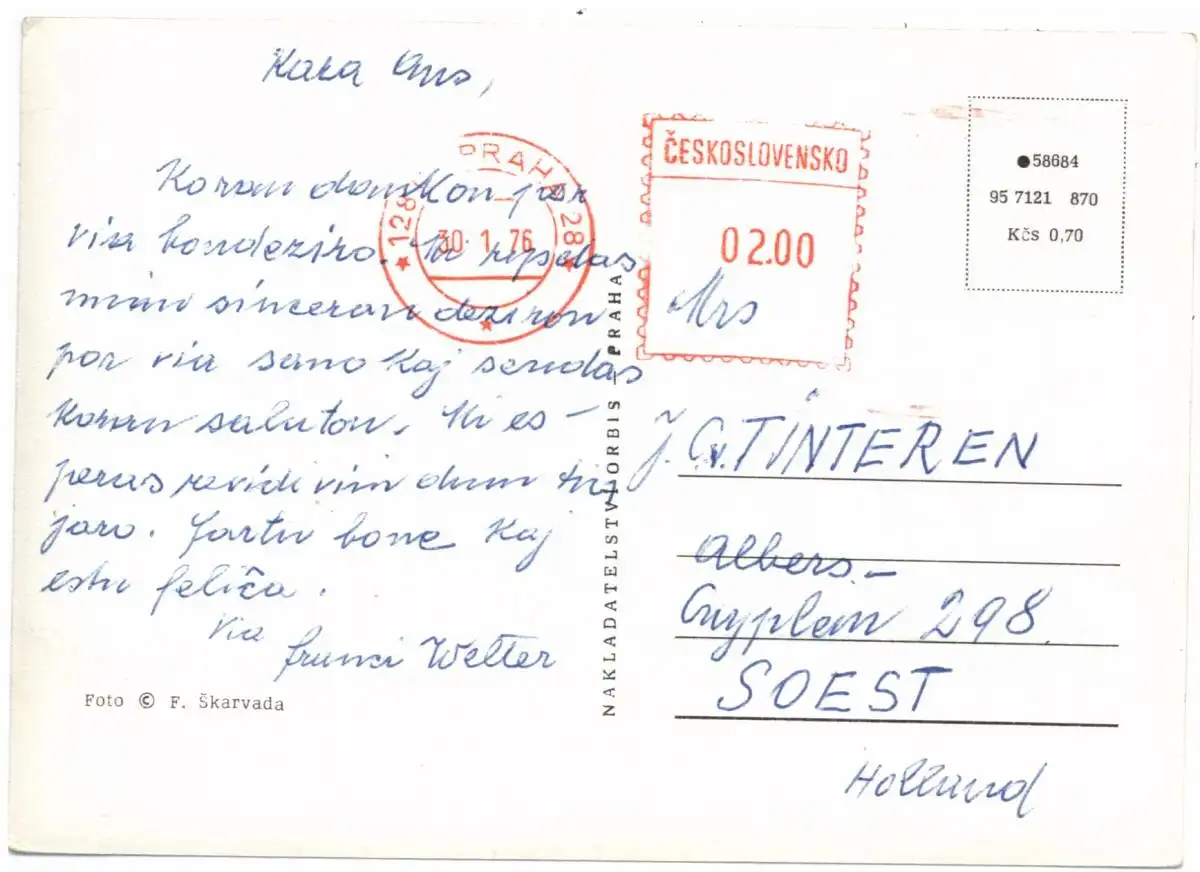 Kara Ans,
Koran dankon por
via bondeziro. Mi ripetas
mian sinceran deziron
por via sano kaj sendas
koran saluton. Mi es-
peras revidi vin dum tiu
jaro. Fartu bone kaj
estu feliĉa.
Via
Franci Welter
Foto © F. Škarvada
NAKLADATELSTVÍ ORBIS PRAHA
PRAHA
128 28
30.1.76
ČESKOSLOVENSKO
02.00
58684
95 7121 870
Kčs 0,70
Mrs
J. C. v. TINTEREN
Albers-
Cuyplan 298
SOEST
Holland